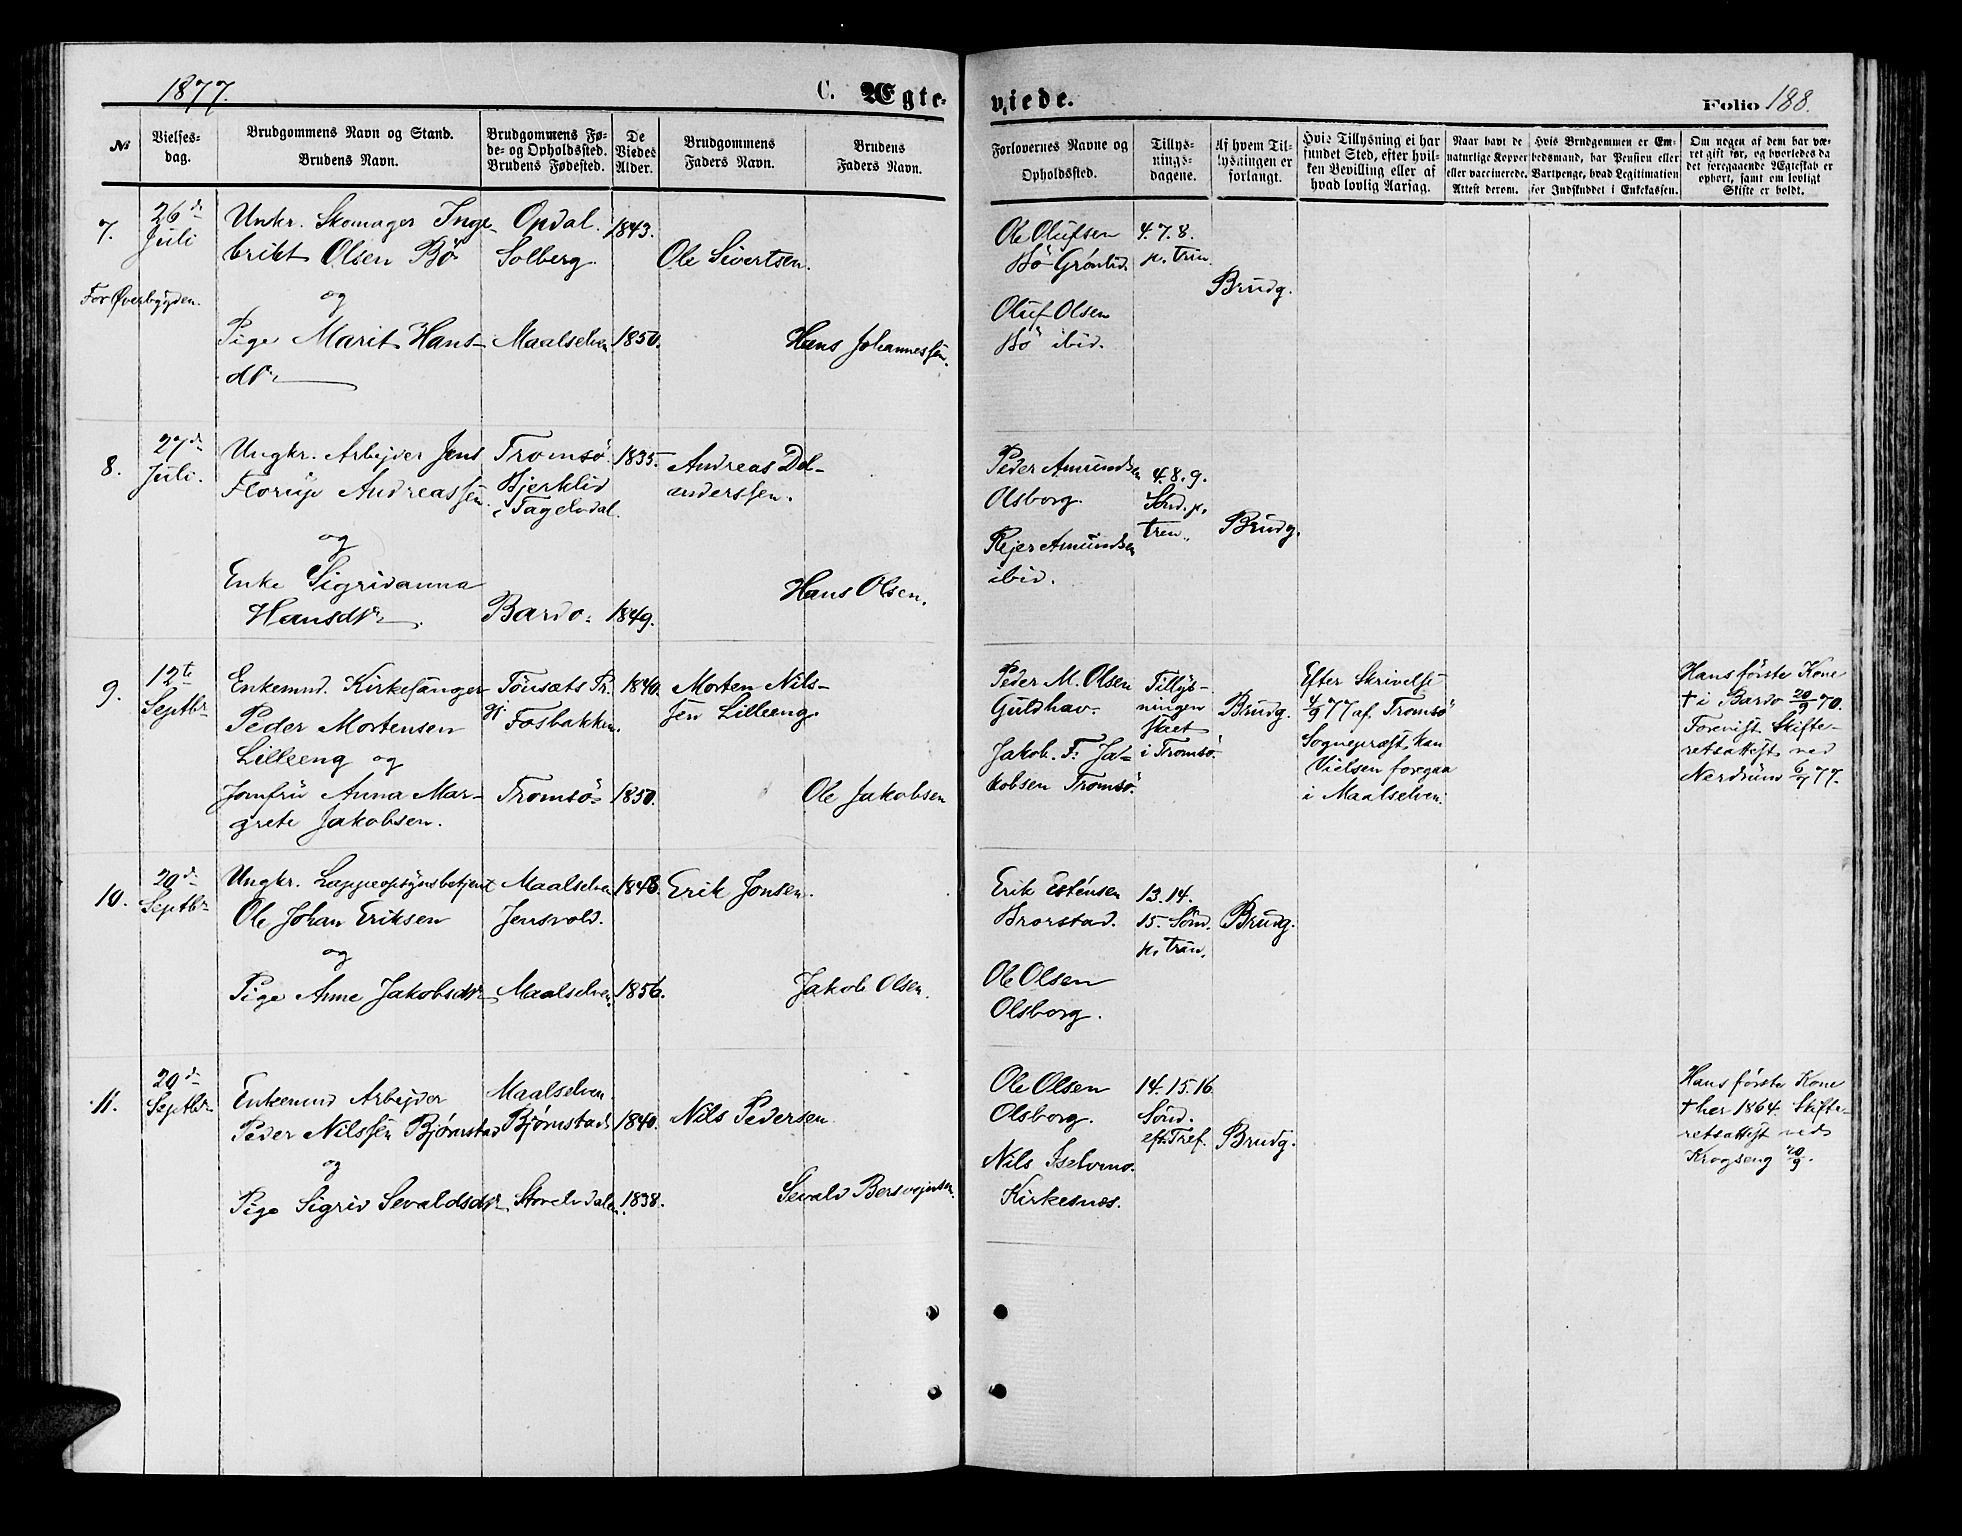 1877.
C. Ægte-
viede.
Folio 188.
№
Vielses-
dag.
Brudgommens Navn og Stand.
Brudens Navn.
Brudgommens Fø-
de- og Opholdssted.
Brudens Fødested.
De
Viedes
Alder.
Brudgommens
Faders Navn.
Brudens
Faders Navn.
Forlovernes Navne og
Opholdssted.
Tillys-
nings-
dagene.
Af hvem Til-
lysningen er
forlangt.
Hvis Tillysning ei har
fundet Sted, efter hvil-
ken Bevilling eller af
hvad lovlig Aarsag.
Naar havt de
naturlige Kopper
eller vaccinerede.
Attest derom.
Hvis Brudgommen er Em-
bedsmand, har Pension eller
Vartpenge, hvad Legitimation
for Indskuddet i Enkekassen.
Om nogen af dem har væ-
ret gift før, og hvorledes da
det foregaaende Ægteskab er
ophørt, samt om lovligt
Skifte er holdt.
7.
26de
Juli
For Øverbygden.
Unkr. Skomager Inge-
brikt Olsen Bö
og
Pige Marit Hans-
dtr
Opdal.
Solberg.
Maalselven
1843.
1850.
Ole Sivertsen.
Hans Johannessen.
Ole Olufsen
Bö Grönlid.
Oluf Olsen
Bö ibid.
4. 7. 8.
p. Trin.
Brudg.
8.
27de
Juli.
Ungkr. Arbejder Jens
Florup Andreassen
og
Enke Sigridanna
Hansdtr.
Tromsö.
Bjerklid
i Tagelvdal.
Bardo.
1835.
1849.
Andreas Del-
anderssen.
Hans Olsen.
Peder Amundsen
Olsborg.
Rejer Amundsen
ibid.
4. 8. 9.
Sönd. p.
tren.
Brudg.
9.
12te
Septbr
Enkemnd. Kirkesanger
Peder Mortensen
Lilleeng og
Jomfru Anna Mar-
grete Jakobsen.
Tönsæts Pr.
gj.
Fosbakken.
Tromsö
1840.
1850.
Morten Nils-
sen Lilleeng.
Ole Jakobsen
Peder M. Olsen
Guldhav.
Jakob. F. Ja-
kobsen Tromsö.
Tillys-
ningen
skeet
i Tromsö.
Brudg.
Efter Skrivelse
4/9 77 af Tromsö
Sognepræst, kan
Vielsen foregaa
i Maalselven.
Hans förste Kone
† i Bardo 20/9 70.
Forevist Skifte-
retsattest ved
Nerdrum 6/7 77.
10.
20de
Septbr
Ungkr. Lappeopsynsbetjent
Ole Johan Eriksen
og
Pige Anne Jakobsdtr
Maalselven
Jensvold.
Maalselven
1848
1856.
Erik Jonsen.
Jakob Olsen.
Erik Estensen
Brorstad.
Ole Olsen
Olsborg.
13. 14.
15. Sönd.
p. Trin.
Brudg.
11.
20de
Septbr
Enkemnd Arbejder
Peder Nilssen Björnstad
og
Pige Sigrid Sevaldsdtr
Maalselven
Björnstad
Storelvdalen
1840.
1838.
Nils Pedersen
Sevald Bersvejnsen.
Ole Olsen
Olsborg.
Nils Iselvmo.
Kirkesnæs.
14. 15. 16
Sönd.
eft. Tref.
Brudg.
Hans förste Kone
† her 1864. Skifte-
retsattest ved
Krogseng 20/9.